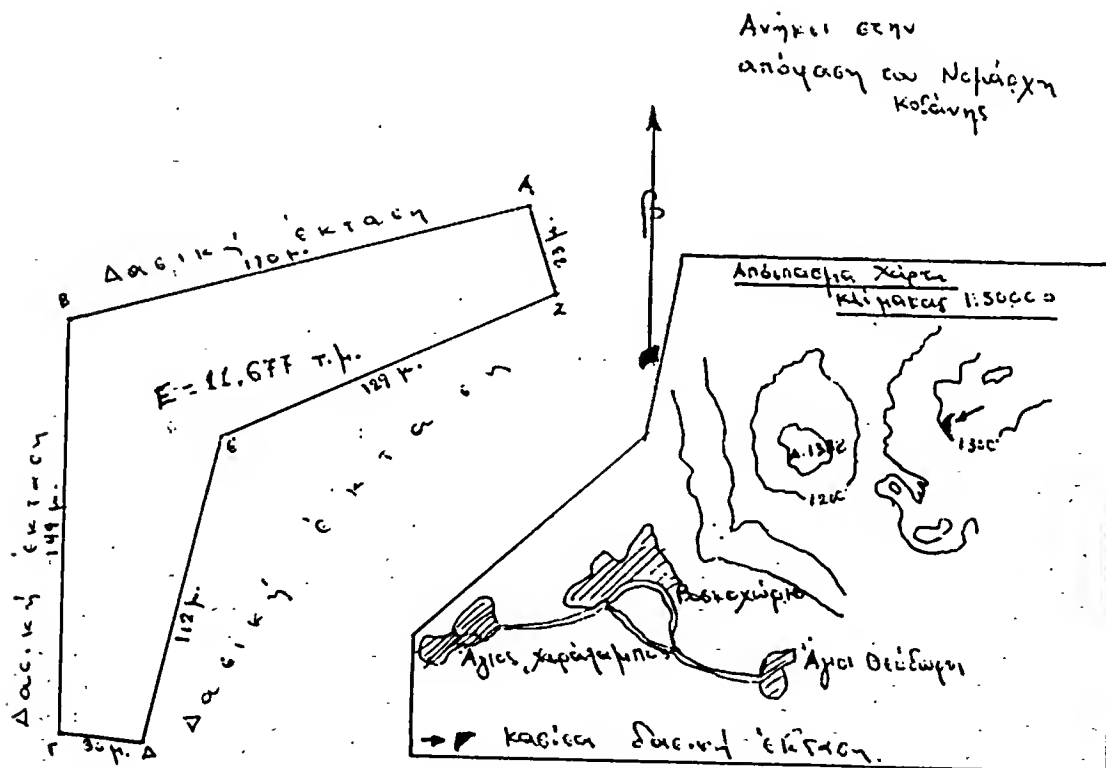 Ανήκει στην
απόφαση του Νομάρχη
Κοζάνης
Α
Δασική έκταση
170 μ.
32 μ.
β
Β
Ζ
Ε=11.677 τ.μ.
129 μ.
Ε
Δασική έκταση
149 μ.
112 μ.
Δασική έκταση
Γ
30 μ.
Δ
Απόσπασμα Χάρτη
κλίμακας 1:50000
1200
1300
Βοσκοχώρι
Άγιος Χαράλαμπος
Άγιοι Θεόδωροι
καείσα δασική έκταση.